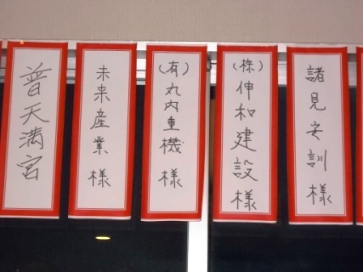 諸見安訓様
(株)伸和建設様
(有)丸内重機様
未来産業様
普天満宮